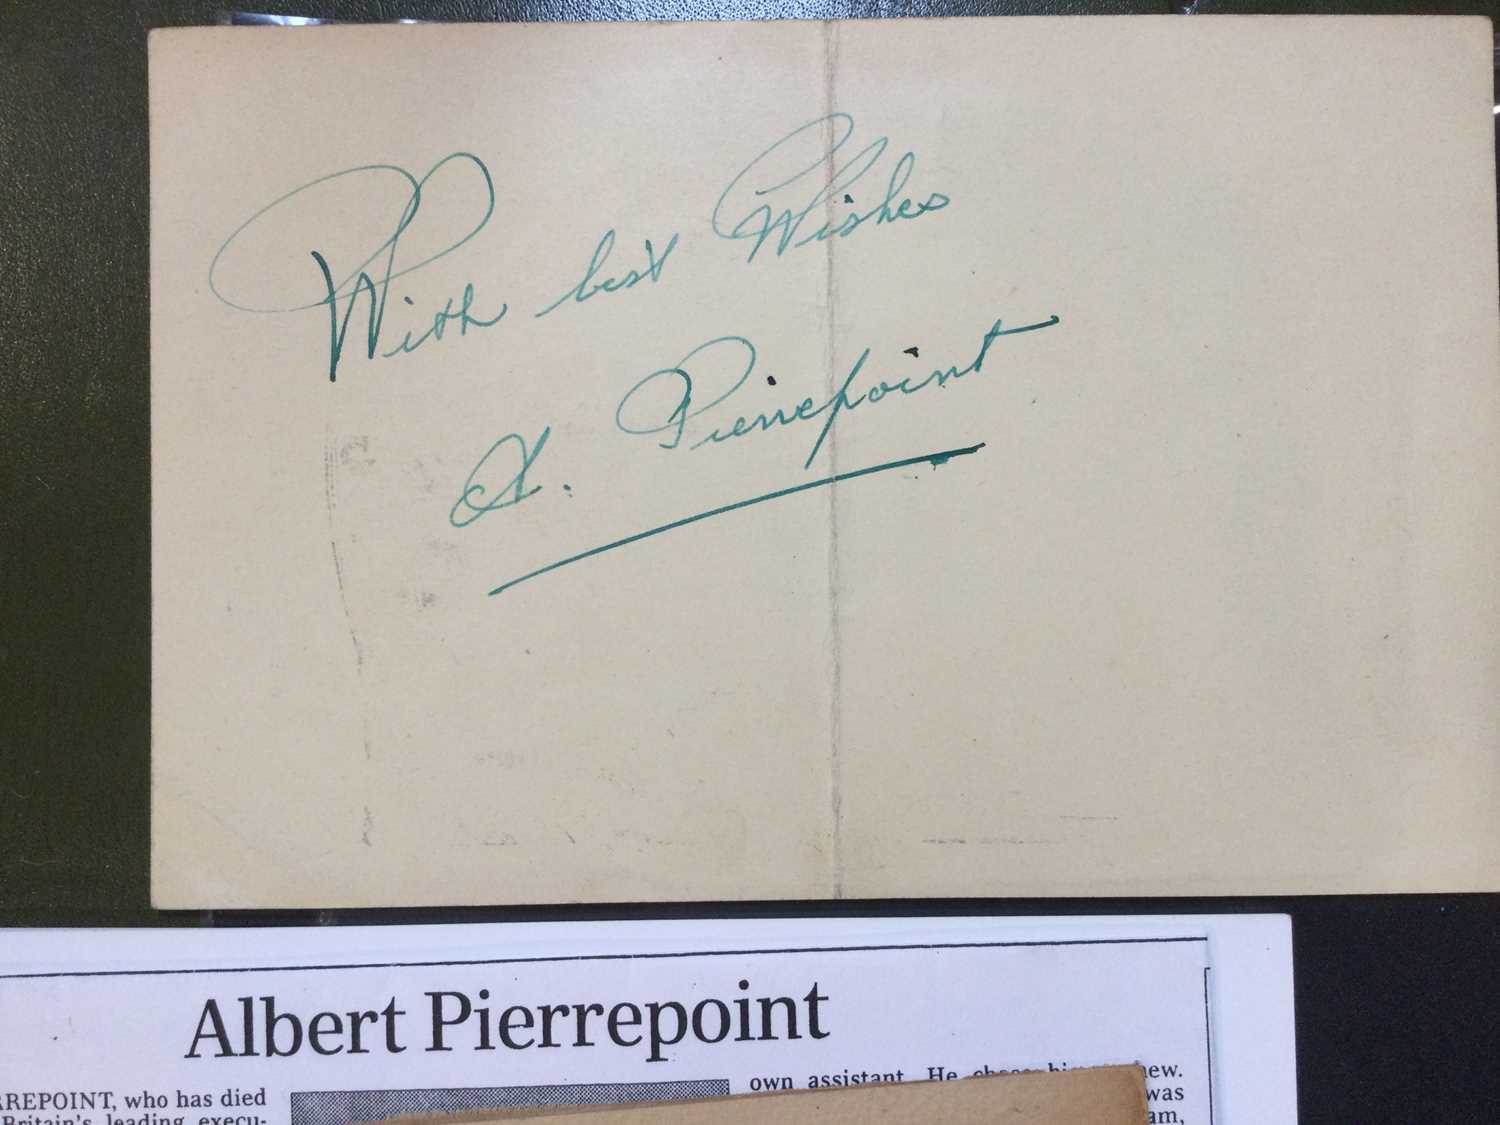 With best Wishes
A. Pierrepoint
Albert Pierrepoint
RREPOINT, who has died
Britain's leading execu-
own assistant. He
ew.
was
am,